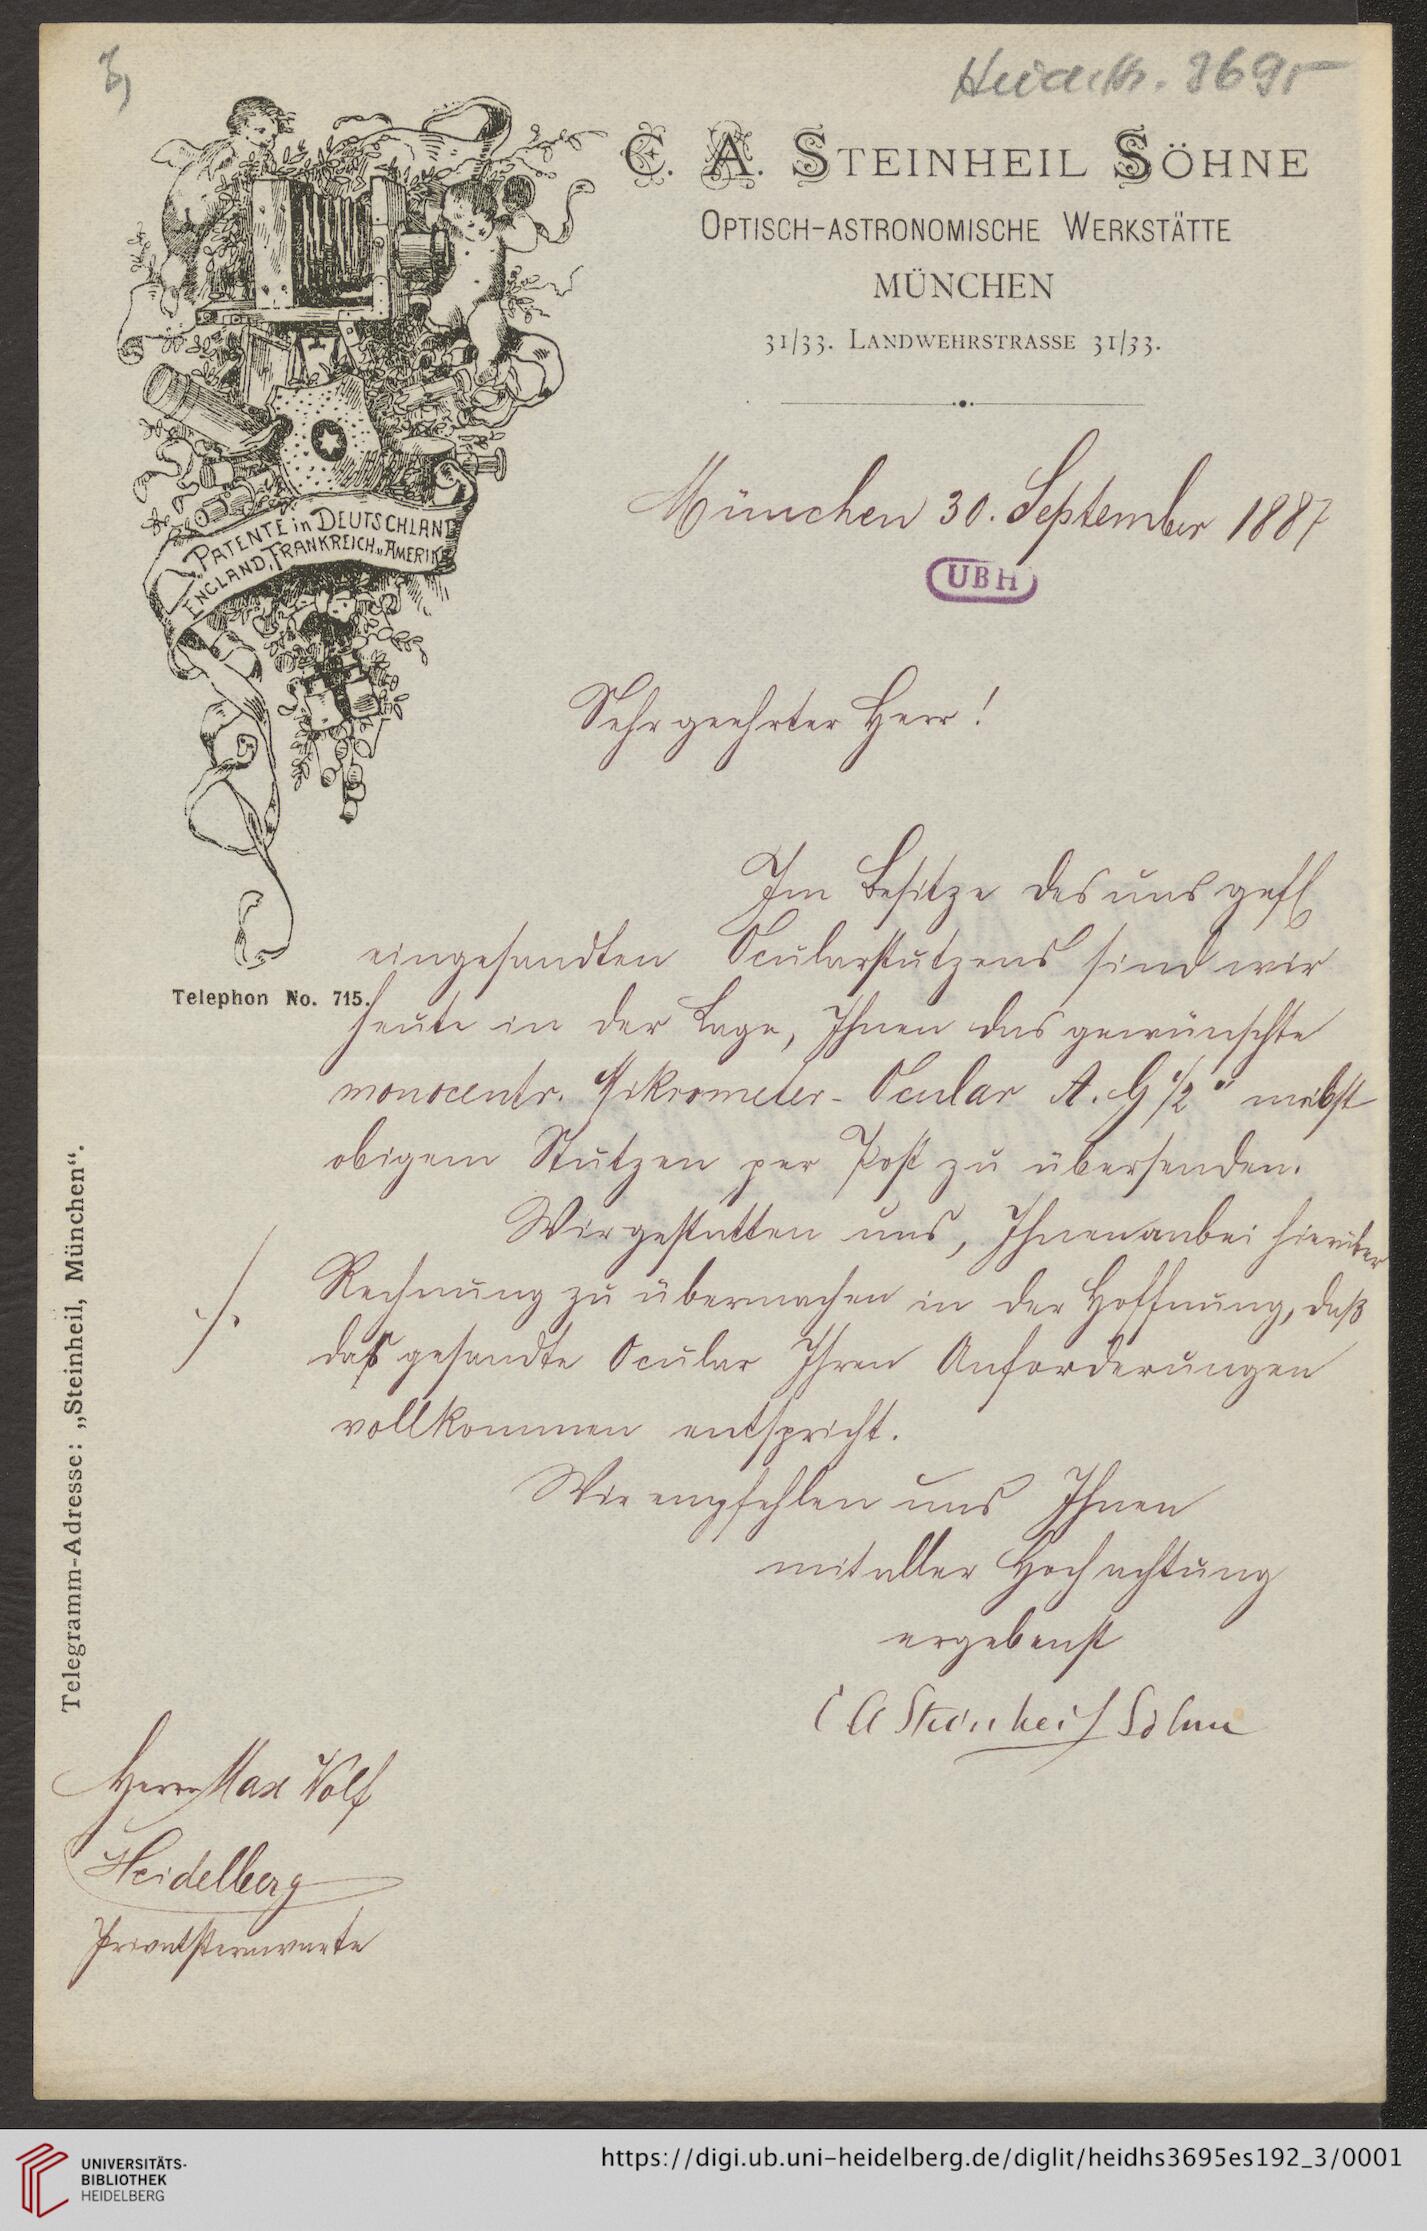 3)
Heid. Hs. 3695
C. A. STEINHEIL SÖHNE
OPTISCH-ASTRONOMISCHE WERKSTÄTTE
MÜNCHEN
31/33. LANDWEHRSTRASSE 31/33.
PATENTE in DEUTSCHLAND
ENGLAND, FRANKREICH u. AMERIKA
München 30. September 1887
UBH
Sehr geehrter Herr!
Im Besitze des uns gefl
eingesandten Ocularstutzens sind wir
Telephon No. 715.
heute in der Lage, Ihnen das gewünschte
monocentr. Mikrometer-Ocular A. G 1/2" nebst
obigem Stutzen per Post zu übersenden.
Wir gestatten uns, Ihnen anbei hierüber
Rechnung zu übermachen in der Hoffnung, daß
das gesandte Ocular Ihren Anforderungen
vollkommen entspricht.
Wir empfehlen uns Ihnen
mit aller Hochachtung
ergebenst
C A Steinheil Söhne
Telegramm-Adresse: „Steinheil, München“.
Herrn Max Wolf
Heidelberg
Privatsternwarte
UNIVERSITÄTS-
BIBLIOTHEK
HEIDELBERG
https://digi.ub.uni-heidelberg.de/diglit/heidhs3695es192_3/0001